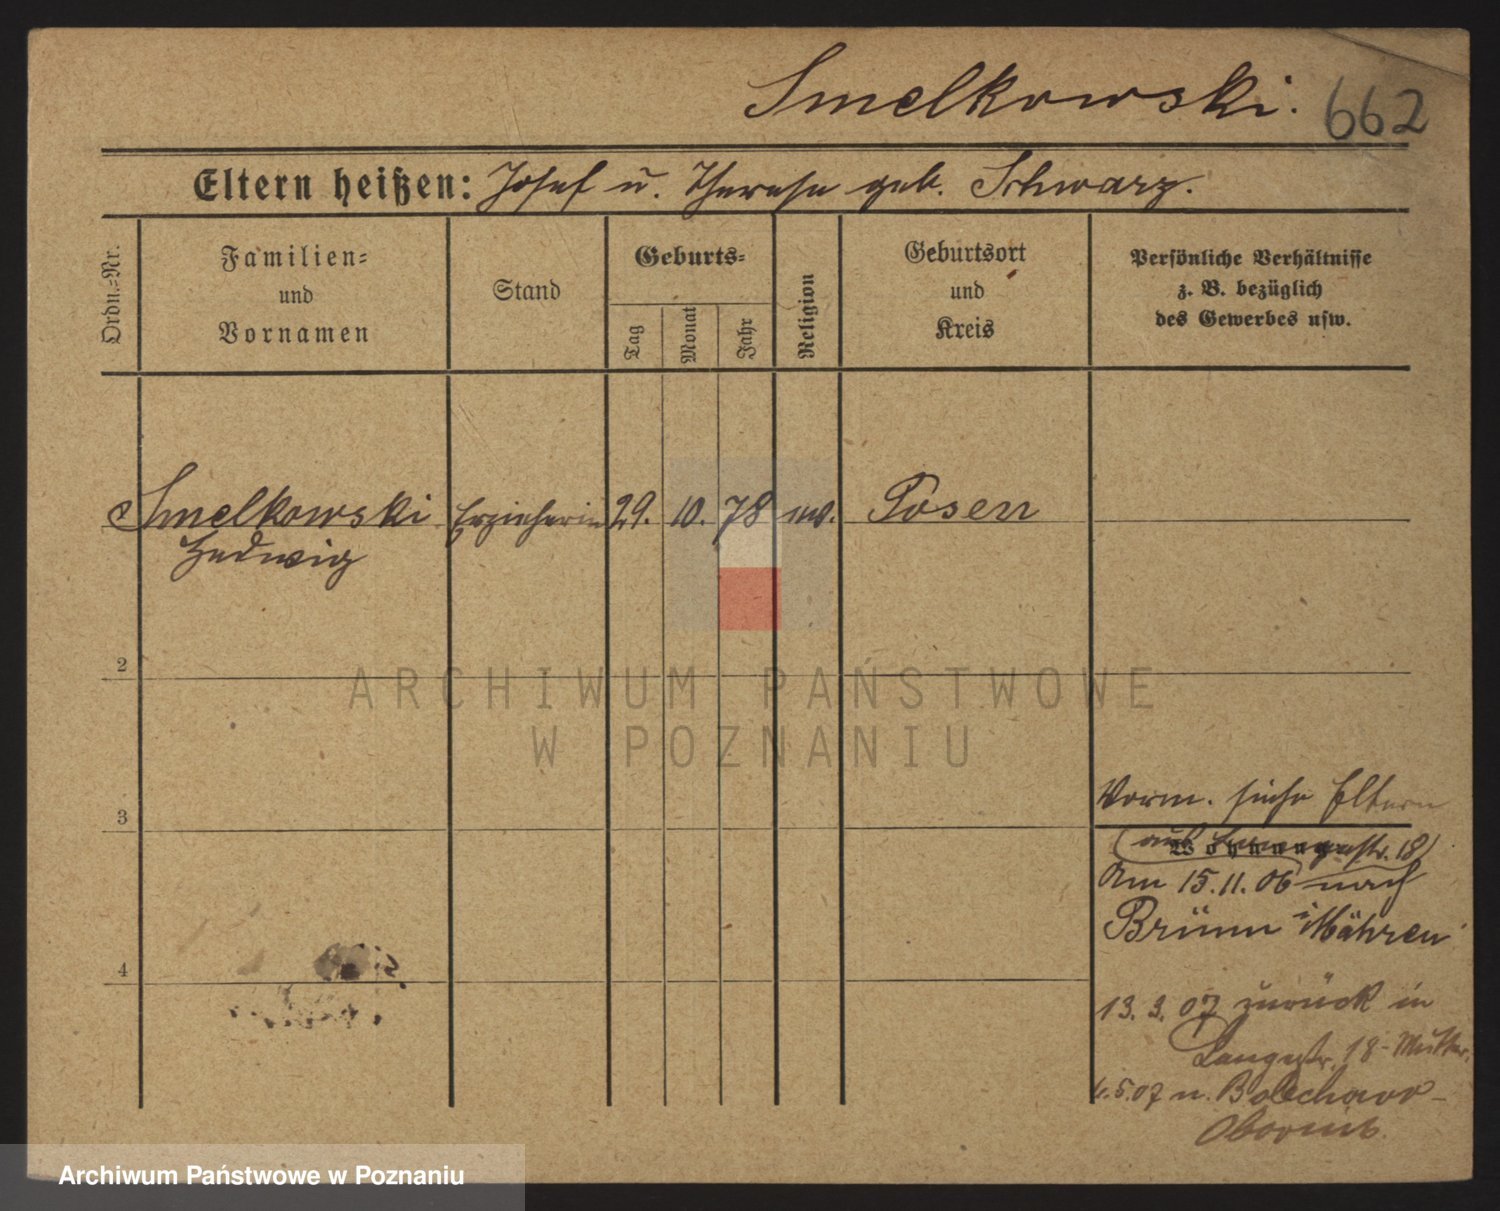 Smelkowski. 662
Eltern heißen: Josef u. Therese geb. Schwarz.
Ordn.=Nr.
Familien=
und
Vornamen
Stand
Geburts=
Tag
Monat
Jahr
Religion
Geburtsort
und
Kreis
Persönliche Verhältnisse
z. B. bezüglich
des Gewerbes usw.
Smelkowski Erzieherin 29. 10. 78 Posen
Hedwig
2
3
4
Vorm. siehe Eltern
Wohnung
(aus Langestr. 18)
Am 15.11.06 nach
Brünn i Mähren
13. 3. 07 zurück in
Langestr. 18 - Mutter.
5.07 n. Bolechowo-
Obornik.
ARCHIWUM PAŃSTWOWE
W POZNANIU
Archiwum Państwowe w Poznaniu